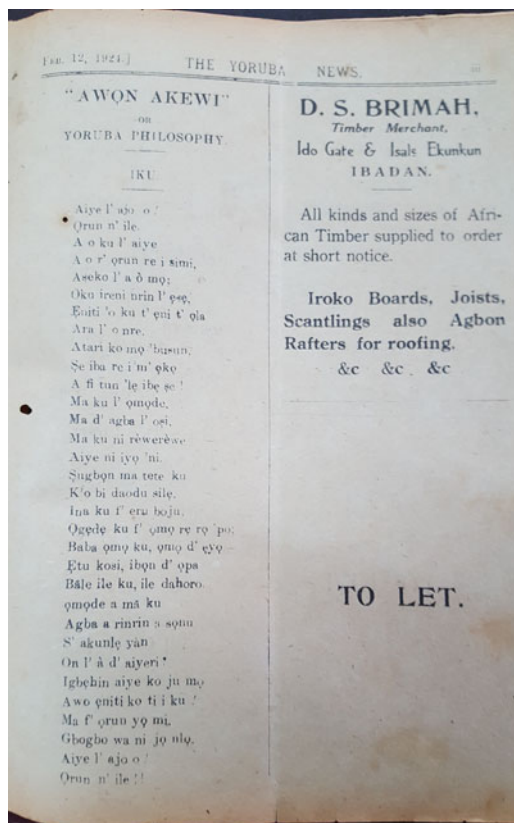 FEB. 12, 1924.] THE YORUBA NEWS. iii
"AWỌN AKEWI"
OR
YORUBA PHILOSOPHY.
IKU.
Aiye l' ajo o !
Ọrun n' ile.
A o ku l' aiye
A o r' ọrun re i simi,
Aseko l' a ò mọ;
Oku ireni nrin l' ẹsẹ,
Ẹniti 'o ku t' ẹni t' ọla
Ara l' o nre,
Atari ko mọ 'busun,
Ṣe iba re i m' ọkọ
A fi tun 'lẹ ibẹ ṣe !
Ma ku l' ọmọde,
Ma d' agba l' oṣi,
Ma ku ni rèwerèwe
Aiye ni iyọ 'ni.
Ṣugbọn ma tete ku
K'o bi daodu silẹ,
Ina ku f' eru boju,
Ọgẹdẹ ku f' ọmọ rẹ rọ 'po;
Baba ọmọ ku, ọmọ d' ẹyọ
Ẹtu kosi, ibọn d' ọpa
Bâle ile ku, ile dahoro.
ọmọde a mâ ku
Agba a rinrin a sọnu
S' akunlẹ yàn
On l' à d' aiyeri !
Igbẹhin aiye ko ju mọ
Awo ẹniti ko ti i ku !
Ma f' ọrun yọ mi,
Gbogbo wa ni jọ nlọ,
Aiye l' ajo o !
Ọrun n' ile !!
D. S. BRIMAH,
Timber Merchant,
Ido Gate & Isale Ekunkun
IBADAN.
All kinds and sizes of Afri-
can Timber supplied to order
at short notice.
Iroko Boards, Joists,
Scantlings also Agbon
Rafters for roofing.
&c &c . &c
TO LET.